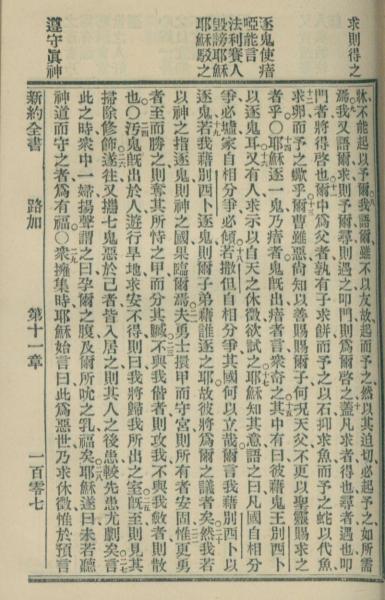 求則得之
牀不能起以予爾我語爾雖不以友故起而予之然以其迫切必起予之如所需
焉我又語爾求則予爾尋則遇之叩門則爲爾啓之蓋凡求者得也尋者遇也叩
十
門者將得啓也爾中爲父者孰有子求餅而予之以石抑求魚而予之蛇以代魚
十二
十三
求卵而予之蠍乎爾曹雖惡尙知以善賜賜爾子何況天父不更以聖靈賜求之
逐鬼使瘖
啞能言
法利賽人
毀謗耶穌
耶穌駁之
十四
十五
者乎〇耶穌逐一鬼乃瘖者鬼旣出瘖者言衆奇之其中有曰彼藉鬼王別西卜
十六
十七
以逐鬼耳又有人求示以自天之休徵欲試之耶穌知其意語之曰凡國自相分
十八
爭必墟家自相分爭必傾若撒但自相分爭其國何以立哉爾言我藉別西卜以
十九
二十
逐鬼若我藉別西卜逐鬼則爾子弟藉誰逐之耶故彼將爲爾之議者矣然我若
二一
二二
以神之指逐鬼則神之國果臨爾焉夫勇士擐甲而守宮則所有者安固惟更勇
二三
者至而勝之則奪其所恃之甲而分其贓不與我偕者則攻我不與我斂者則散
二四
二五
也〇汚鬼旣出於人遊行旱地求安不得則曰我將歸我所出之室旣至則見其
二六
二七
掃除修飾遂往又攜七鬼惡於己者皆入居之則其人之後患較先患尤劇矣言
二八
此之時衆中一婦揚聲謂之曰孕爾之腹及爾所吮之乳福矣耶穌遂曰未若聽
遵守眞神
二九
神道而守之者爲有福〇衆擁集時耶穌始言曰此爲惡世乃求休徵惟於預言
新約全書 路加 第十一章 一百零七